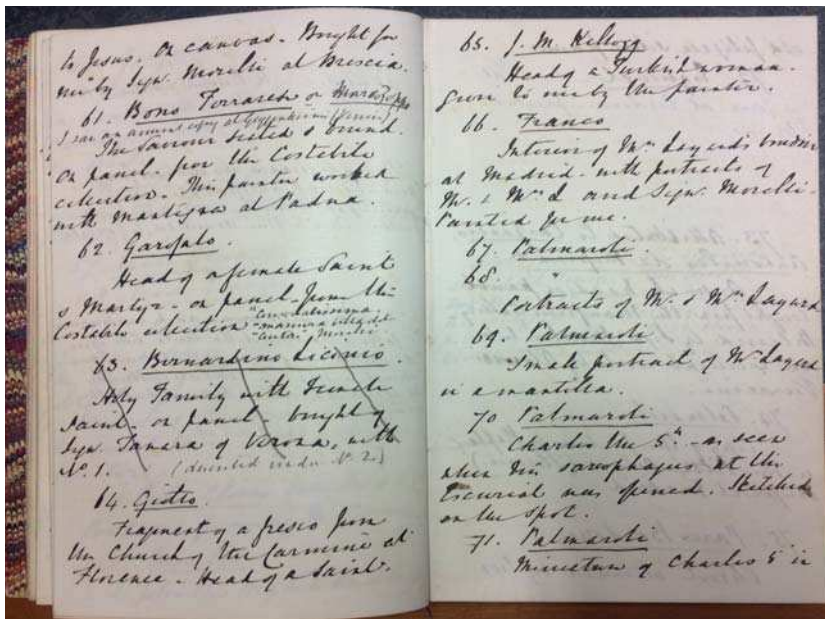 to Jesus. On canvas. Bought for
me by Sigr. Morelli at Brescia.
61. Bono Ferrarese or Marco Zoppo
I saw an ancient copy at Guggenheim's (Venice)
The Saviour seated & bound.
On panel. from the Costabili
collection. This painter worked
with Mantegna at Padua.
62. Garofalo.
Head of a female Saint
& Martyr - on panel. From the
Costabili collection
"maniera
Morelli
63. Bernardino Licinio.
Holy Family with Female
Saint. on panel. bought of
Sigr. Tanara of Verona, with
No. 1. (described under No. 2.)
64. Giotto.
Fragment of a fresco from
the Church of the Carmine at
Florence - Head of a Saint.
65. J. M. Kellogg
Head of a Turkish woman.
given to me by the painter.
66. Franco
Interior of Mrs Layard's boudoir
at Madrid - with portraits of
Mr. & Mrs L and Sigr. Morelli -
Painted for me.
67. Palmaroli
68. "
Portraits of Mr. & Mrs Layard
69. Palmaroli
Small portrait of Mrs Layard
in a mantilla.
70 Palmaroli
Charles the 5th - as seen
when his sarcophagus at the
Escurial was opened. Sketched
on the spot.
71. Palmaroli
Miniature of Charles 5 in